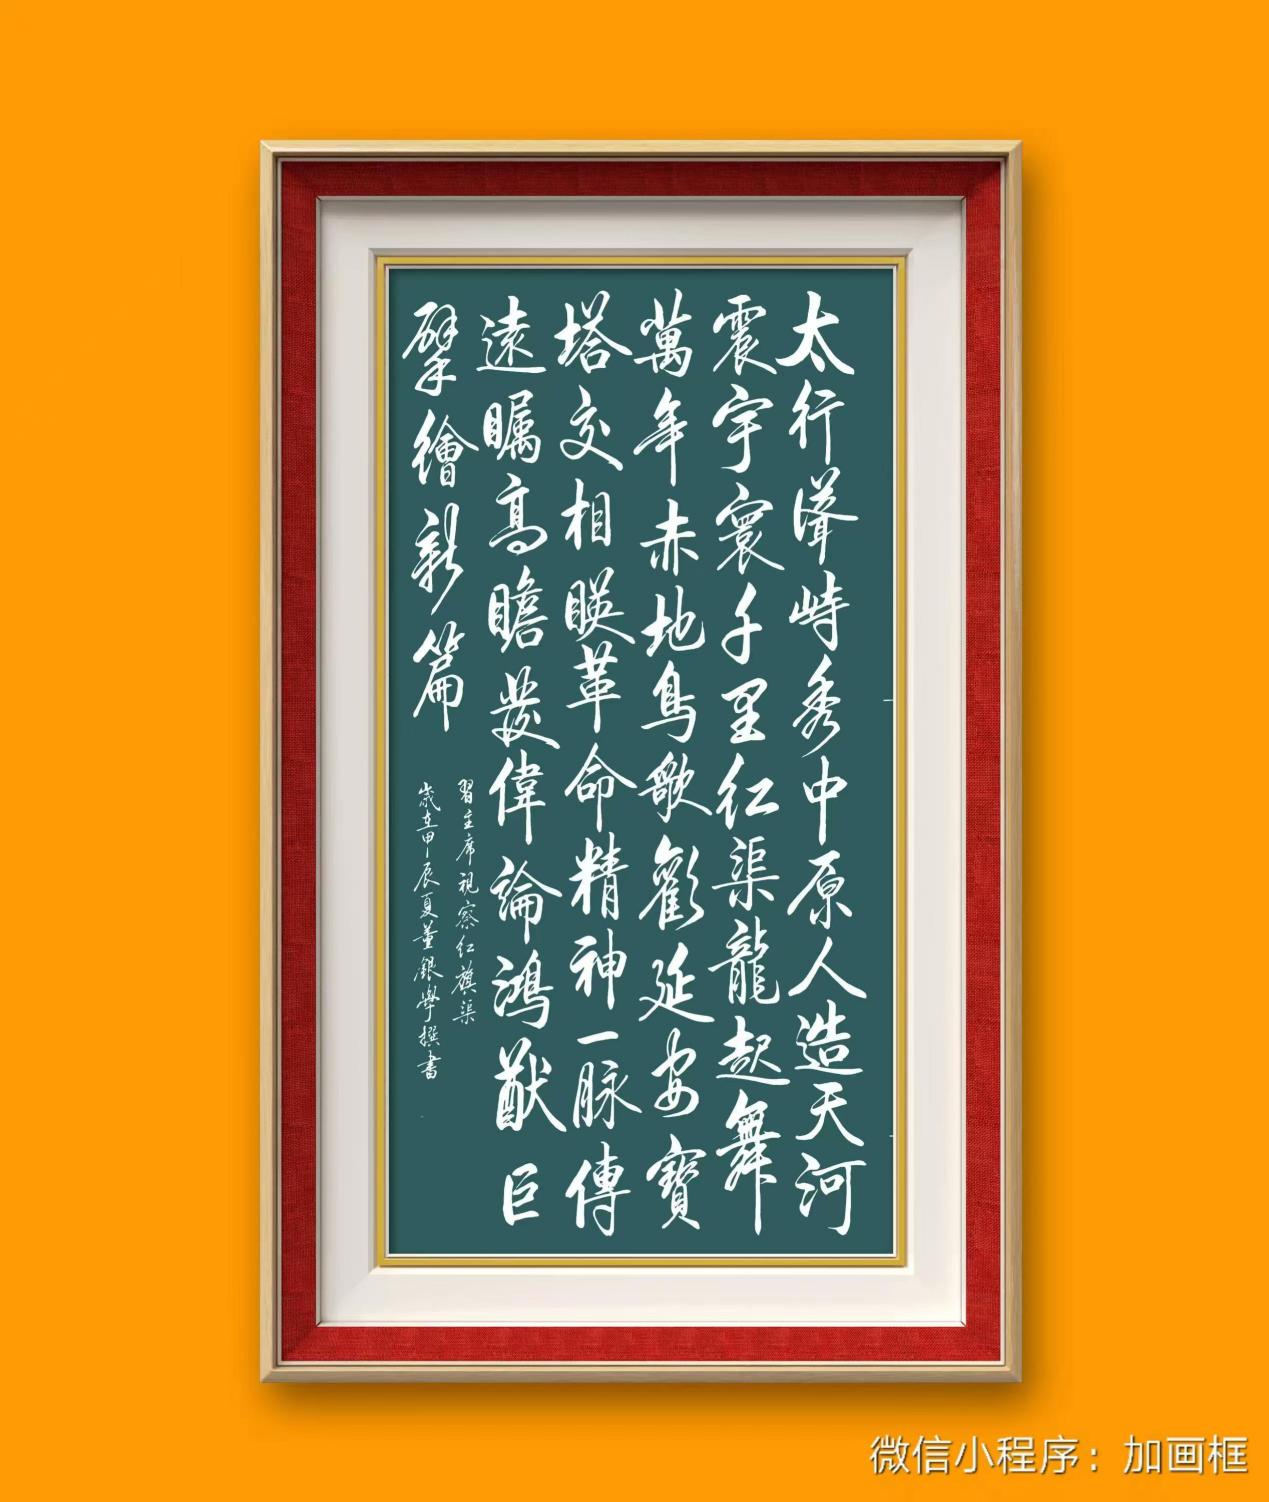 太行聳峙秀中原人造天河
震宇寰千里红渠龍起舞
萬年赤地鳥歌歡延安寶
塔交相暎革命精神一脉傳
遠矚高瞻發偉論鴻猷巨
擘繪新篇
習主席視察红旗渠
歲在甲辰夏董銀學撰書
微信小程序：加画框